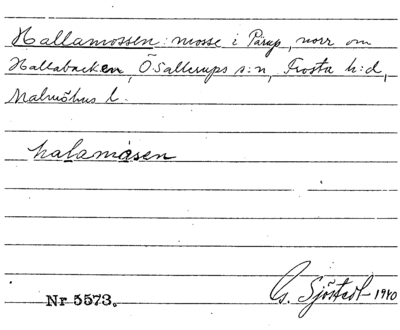 Hallamossen: mosse i Pårup, norr om
Hallabacken, Ö Sallerups s:n, Frosta h:d,
Malmöhus l.
halamåsen
Nr 5573.
G. Sjöstedt 1940